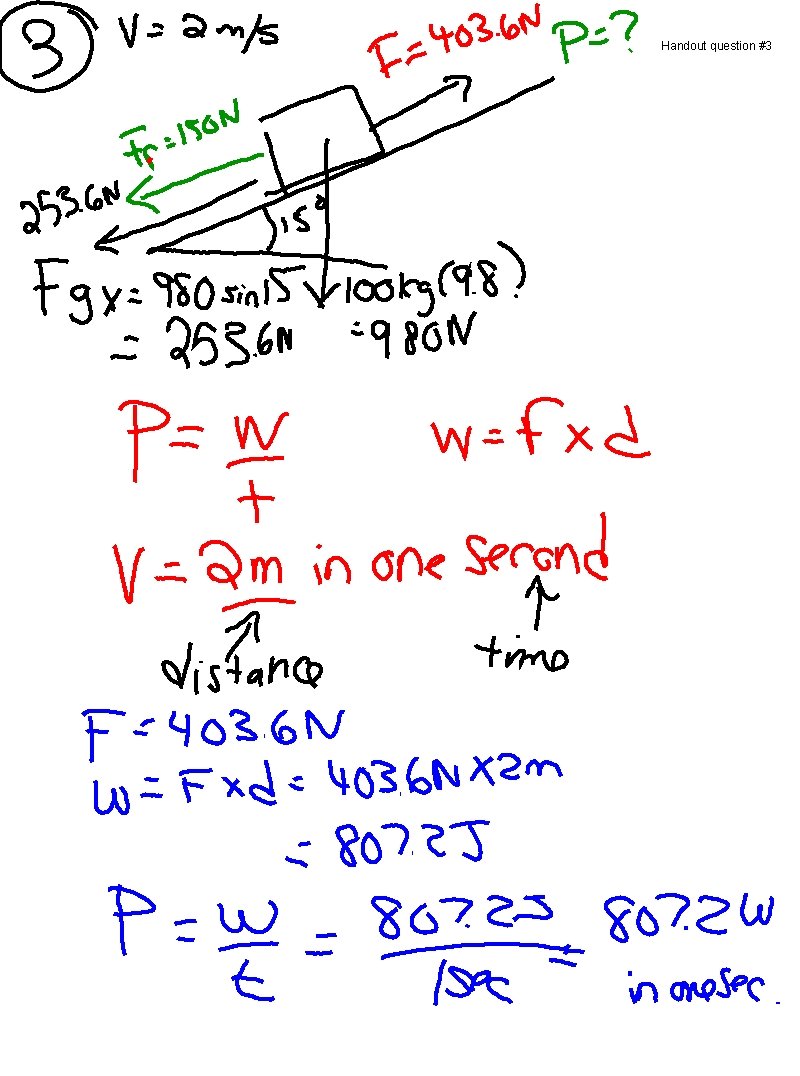 3 V = 2 m/s F = 403.6N P = ? Handout question #3
Fr = 150N
253.6N
15°
Fgx = 980 sin15 100kg(9.8)
= 253.6N = 980N
P = W/t W = F x d
V = 2m in one second
distance time
F = 403.6N
W = F x d = 403.6N x 2m
= 807.2J
P = W/t = 807.2J/1sec = 807.2W
in one sec.